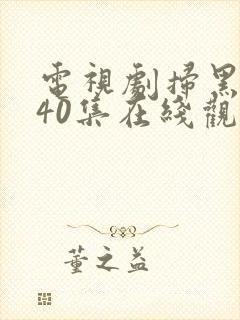 電視劇掃黑
40集在綫觀
董之益